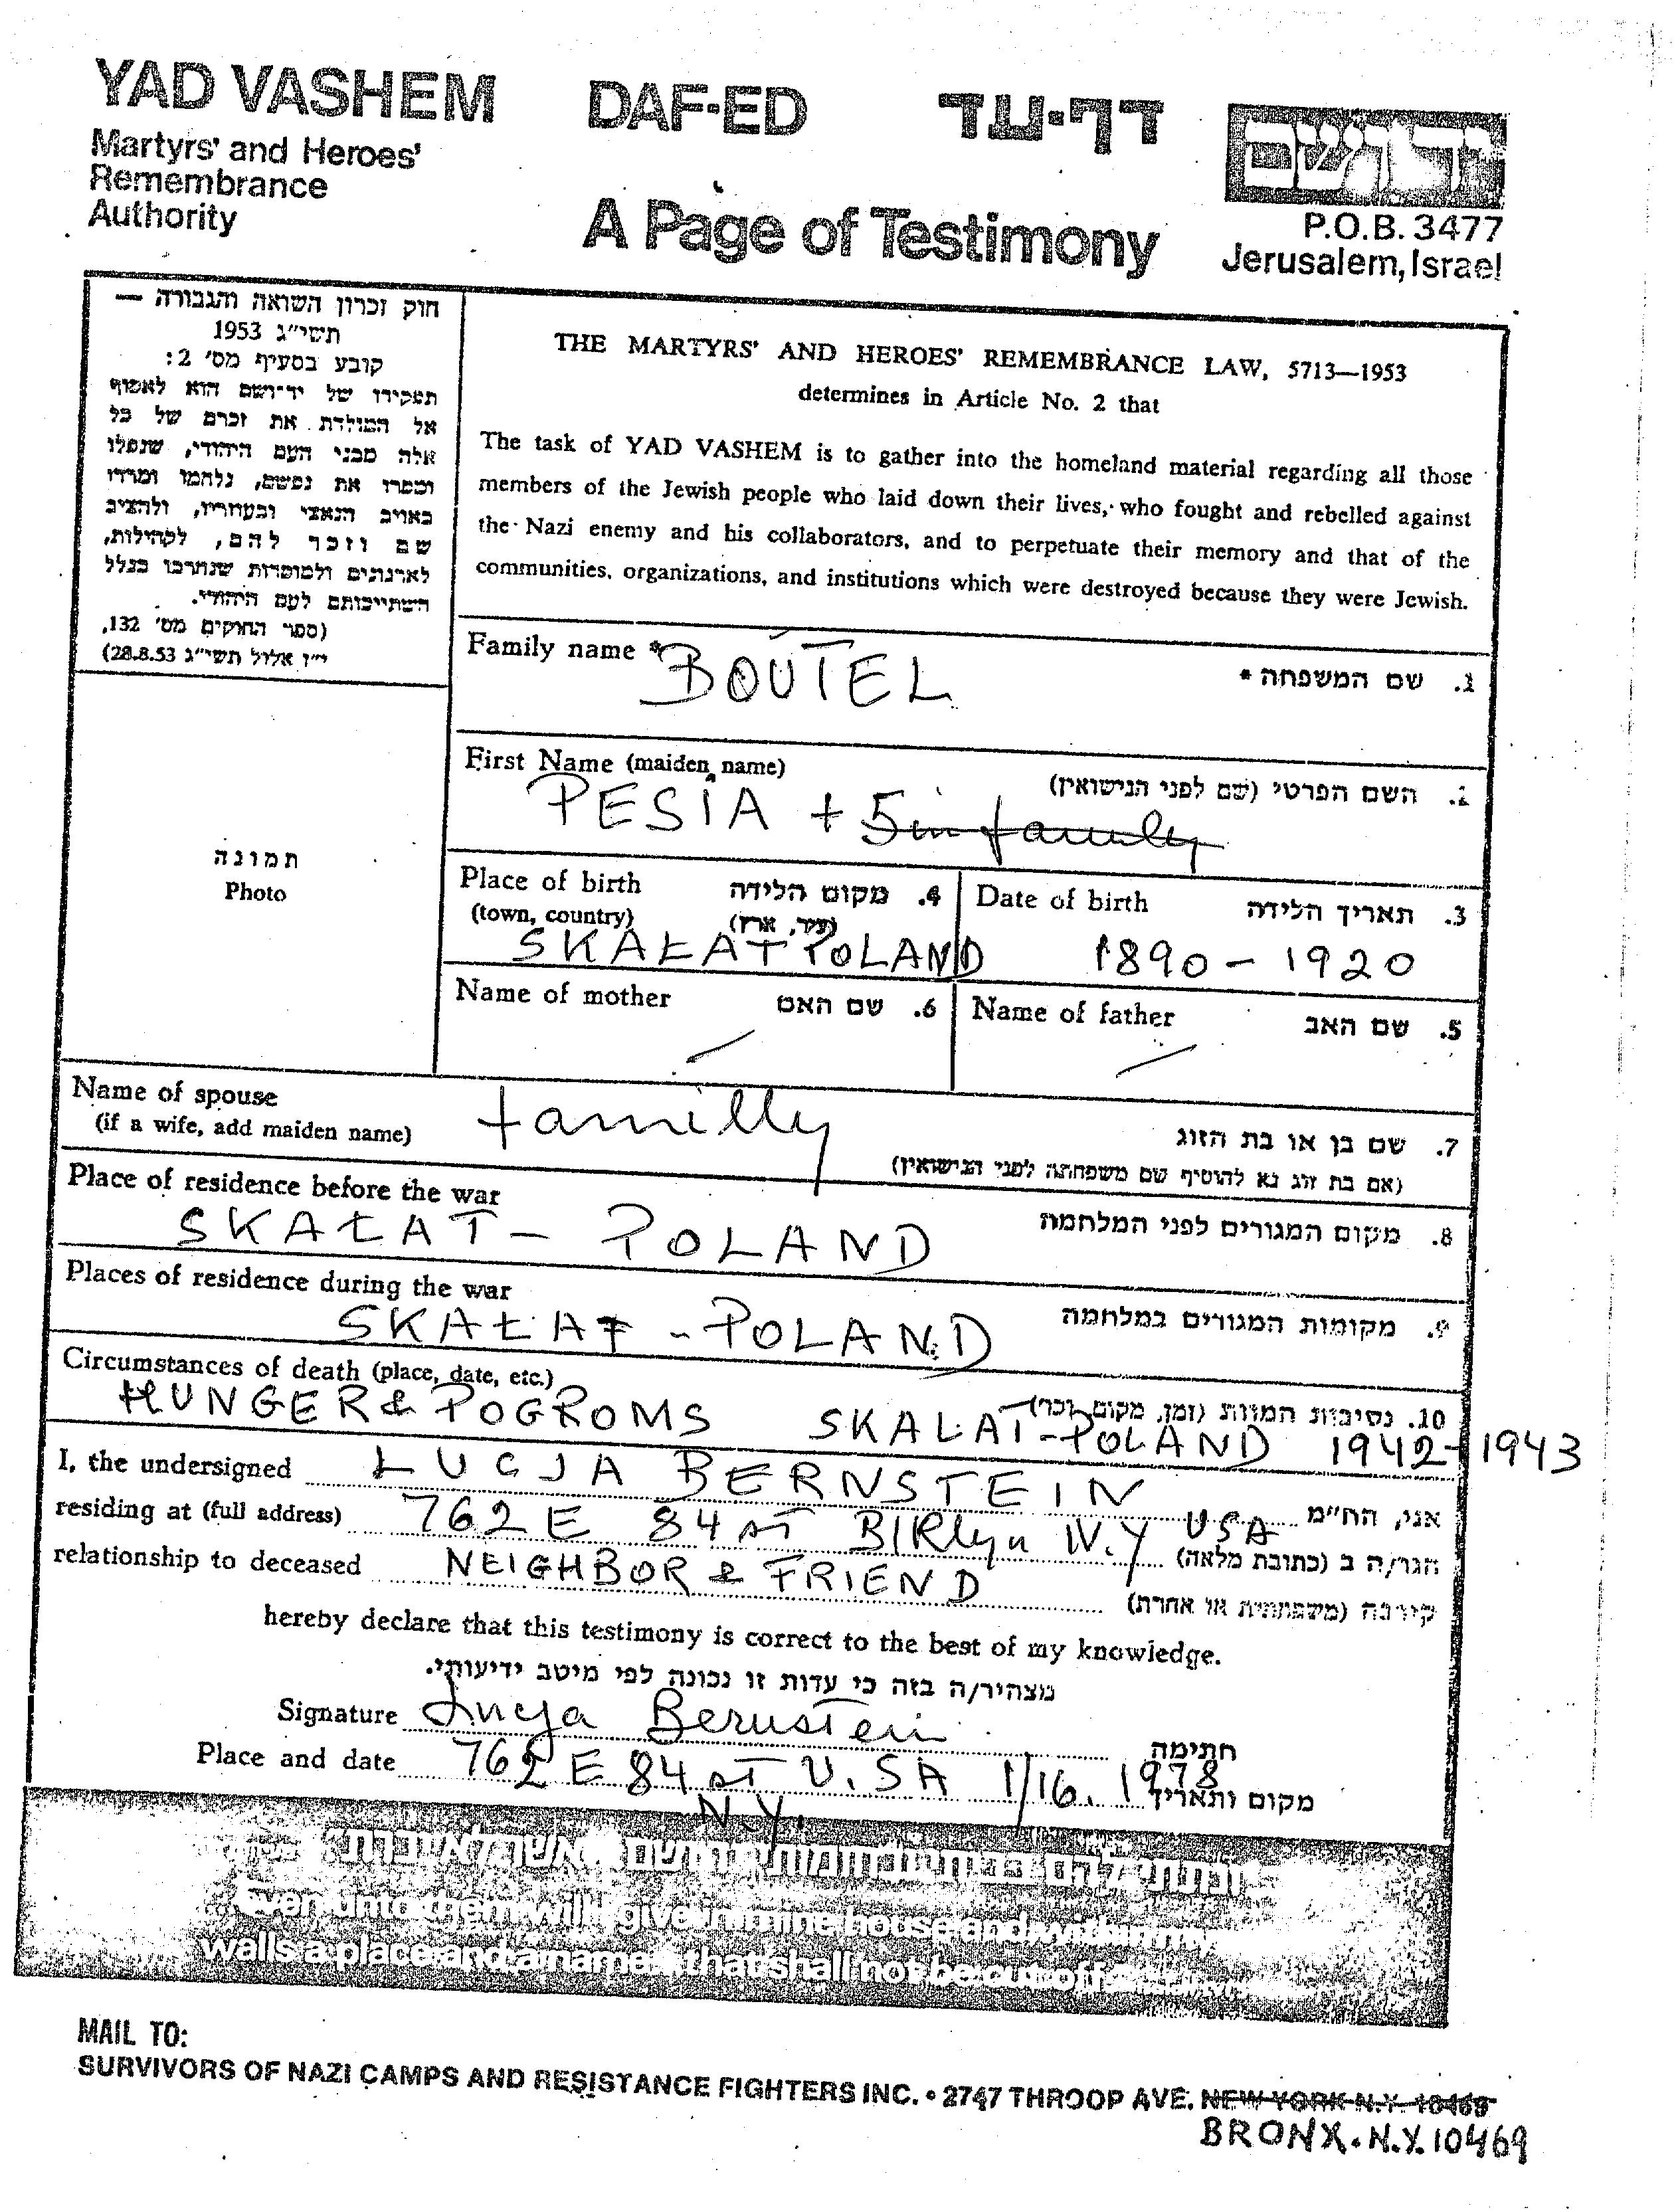 YAD VASHEM DAF-ED דף-עד יד ושם
Martyrs' and Heroes'
Remembrance
Authority
A Page of Testimony
P.O.B. 3477
Jerusalem, Israel
חוק זכרון השואה והגבורה —
תשי"ג 1953
קובע בסעיף מס' 2:
תפקידו של יד־ושם הוא לאסוף
אל המולדת את זכרם של כל
אלה מבני העם היהודי, שנפלו
ומסרו את נפשם, נלחמו ומרדו
באויב הנאצי ובעוזריו, ולהציב
שם וזכר להם, לקהילות,
לארגונים ולמוסדות שנחרבו בגלל
השתייכותם לעם היהודי.
(ספר החוקים מס' 132,
י"ז אלול תשי"ג 28.8.53)
THE MARTYRS' AND HEROES' REMEMBRANCE LAW, 5713—1953
determines in Article No. 2 that
The task of YAD VASHEM is to gather into the homeland material regarding all those
members of the Jewish people who laid down their lives, who fought and rebelled against
the Nazi enemy and his collaborators, and to perpetuate their memory and that of the
communities, organizations, and institutions which were destroyed because they were Jewish.
Family name * 1. שם המשפחה *
BOUTEL
First Name (maiden name) 2. השם הפרטי (שם לפני הנישואין)
PESIA + 5 in family
תמונה
Photo
Place of birth 4. מקום הלידה
(town, country) (עיר, ארץ)
SKAŁAT POLAND
Date of birth 3. תאריך הלידה
1890 - 1920
Name of mother 6. שם האם
Name of father 5. שם האב
Name of spouse 7. שם בן או בת הזוג
(if a wife, add maiden name) familly (אם בת זוג נא להוסיף שם משפחתה לפני הנישואין)
Place of residence before the war 8. מקום המגורים לפני המלחמה
SKAŁAT - POLAND
Places of residence during the war 9. מקומות המגורים במלחמה
SKAŁAT - POLAND
Circumstances of death (place, date, etc.) 10. נסיבות המוות (זמן, מקום, וכו')
HUNGER & POGROMS SKALAT-POLAND 1942-1943
I, the undersigned LUCJA BERNSTEIN אני, הח"מ
residing at (full address) 762 E 84 ST B/Rklyn N.Y USA הגר/ה ב (כתובת מלאה)
relationship to deceased NEIGHBOR & FRIEND קירבה (משפחתית או אחרת)
hereby declare that this testimony is correct to the best of my knowledge.
מצהיר/ה בזה כי עדות זו נכונה לפי מיטב ידיעותי.
Signature Lucja Bernstein חתימה
Place and date 762 E 84 ST U.SA 1/16. 1978 מקום ותאריך
N.Y.
ונתתי להם בביתי ובחומותי יד ושם אשר לא יכרת
even unto them will I give in mine house and within my
walls a place and a name that shall not be cut off
MAIL TO:
SURVIVORS OF NAZI CAMPS AND RESISTANCE FIGHTERS INC. • 2747 THROOP AVE. NEW YORK N.Y. 10469
BRONX. N.Y. 10469